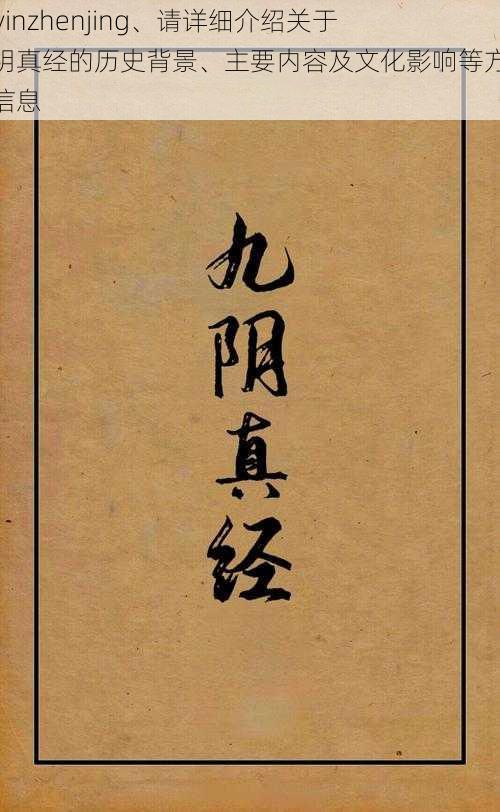 yinzhenjing、请详细介绍关于
阴真经的历史背景、主要内容及文化影响等方
信息
九阴真经